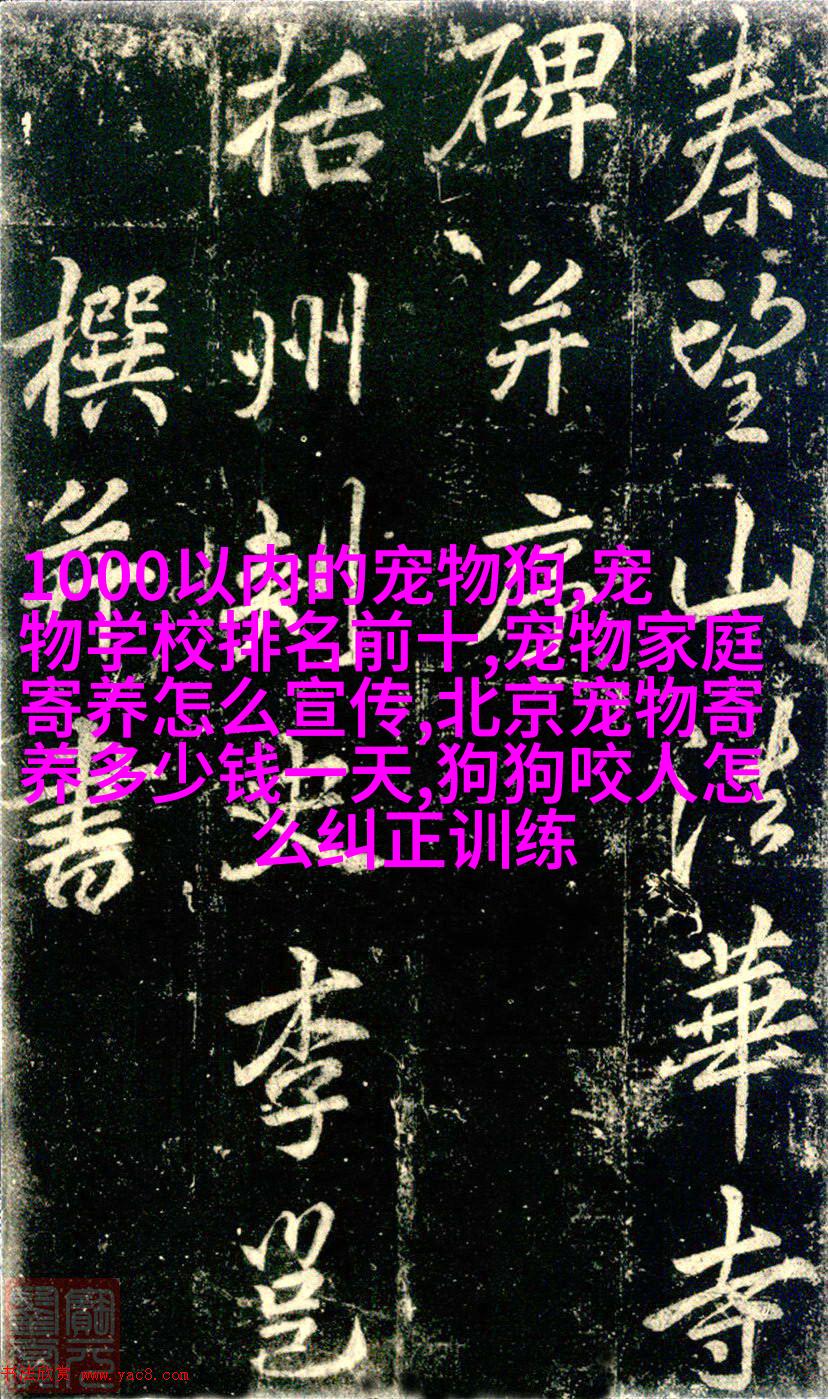 秦望山法華寺
碑并序
括州刺史李邕
撰并書
1000以内的宠物狗,宠
物学校排名前十,宠物家庭
寄养怎么宣传,北京宠物寄
养多少钱一天,狗狗咬人怎
么纠正训练
书法欣赏 www.yac8.com